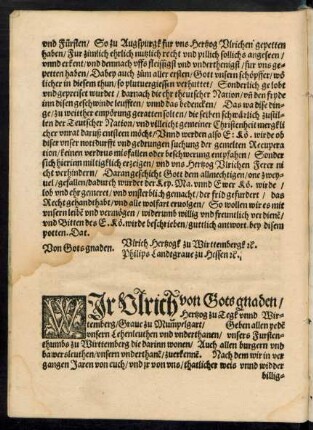 vnd Fürsten / So zu Augspurgk fur vns Hertzog Ulrichen gepetten
haben / Fur zimlich ehrlich nutzlich recht vnd pillich söllichs angesehen /
vnnd erkent / vnd demnach vffs fleissigst vnd vnderthenigst / fur vns ge-
petten haben / Dabey auch zum aller ersten / Gott vnsern schöpffer / wö
licher in diesem thun / so plutuergiessen verhuttet / Sonderlich gelobt
vnd gepreist wurdet / darnach die ehr theutscher Nation / vnd den frydē
inn disen geschwinde leufften / vnnd das bedencken / Das wa diße din-
ge / zu weitther empörung geraten solten / die sachen schwärlich zustil-
len der Teutscher Nation / vnd villeicht gemeiner Christenheit mergklj
cher vnrat daruß entsteen möcht / Vnnd werden also E: Kö. wirde ob
diser vnser notdurfft vnd gedrungen suchung der gemelten Recupera
tion / keinen verdrus misfallen oder beschwerung entpfahen / Sonder
sich hierinn miltigklich erzeigen / vnd vns Hertzog Ulrichen Ferer nicht
verhindern / Daran geschicht Gott dem allmechtigen / one zwey-
uel / gefallen / dadurch wurdet der Key. Ma. vnnd Ewer Kö. wirde /
lob vnd ehr gemeret / vnd vnsterblich gemacht / der frid gefurdert / das
Recht gehandthabt / vnd alle wolfart eruolgen / So wollen wir es mit
vnsern leibē vnd vermögen / widerumb willig vnd freuntlich verdienē /
vnd bitten des E. Kö. wirde beschrieben / guttlich antwort bey disem
potten. Dat.
Von Gots gnaden.
Ulrich Hertzogk zu Wirttembergk ꝛc.
Philips Landtgraue zu Hessen ꝛc.
WJr Ulrich von Gots gnaden /
Hertzog zu Tegk vnnd Wir-
temberg / Graue zu Mumpelgart / Geben allen yedē
vnsern Lehenleuthen vnd vnderthanen / vnsers Fursten-
thumbs zu Wirttemberg die darinn wonen / Auch allen burgern vnd
bawersleuthen / vnsern vnderthanē / zuerkennē. Nach dem wir in ver-
gangen Jaren von euch / vnd jr von vns / thatlicher weis vnnd widder
billig-